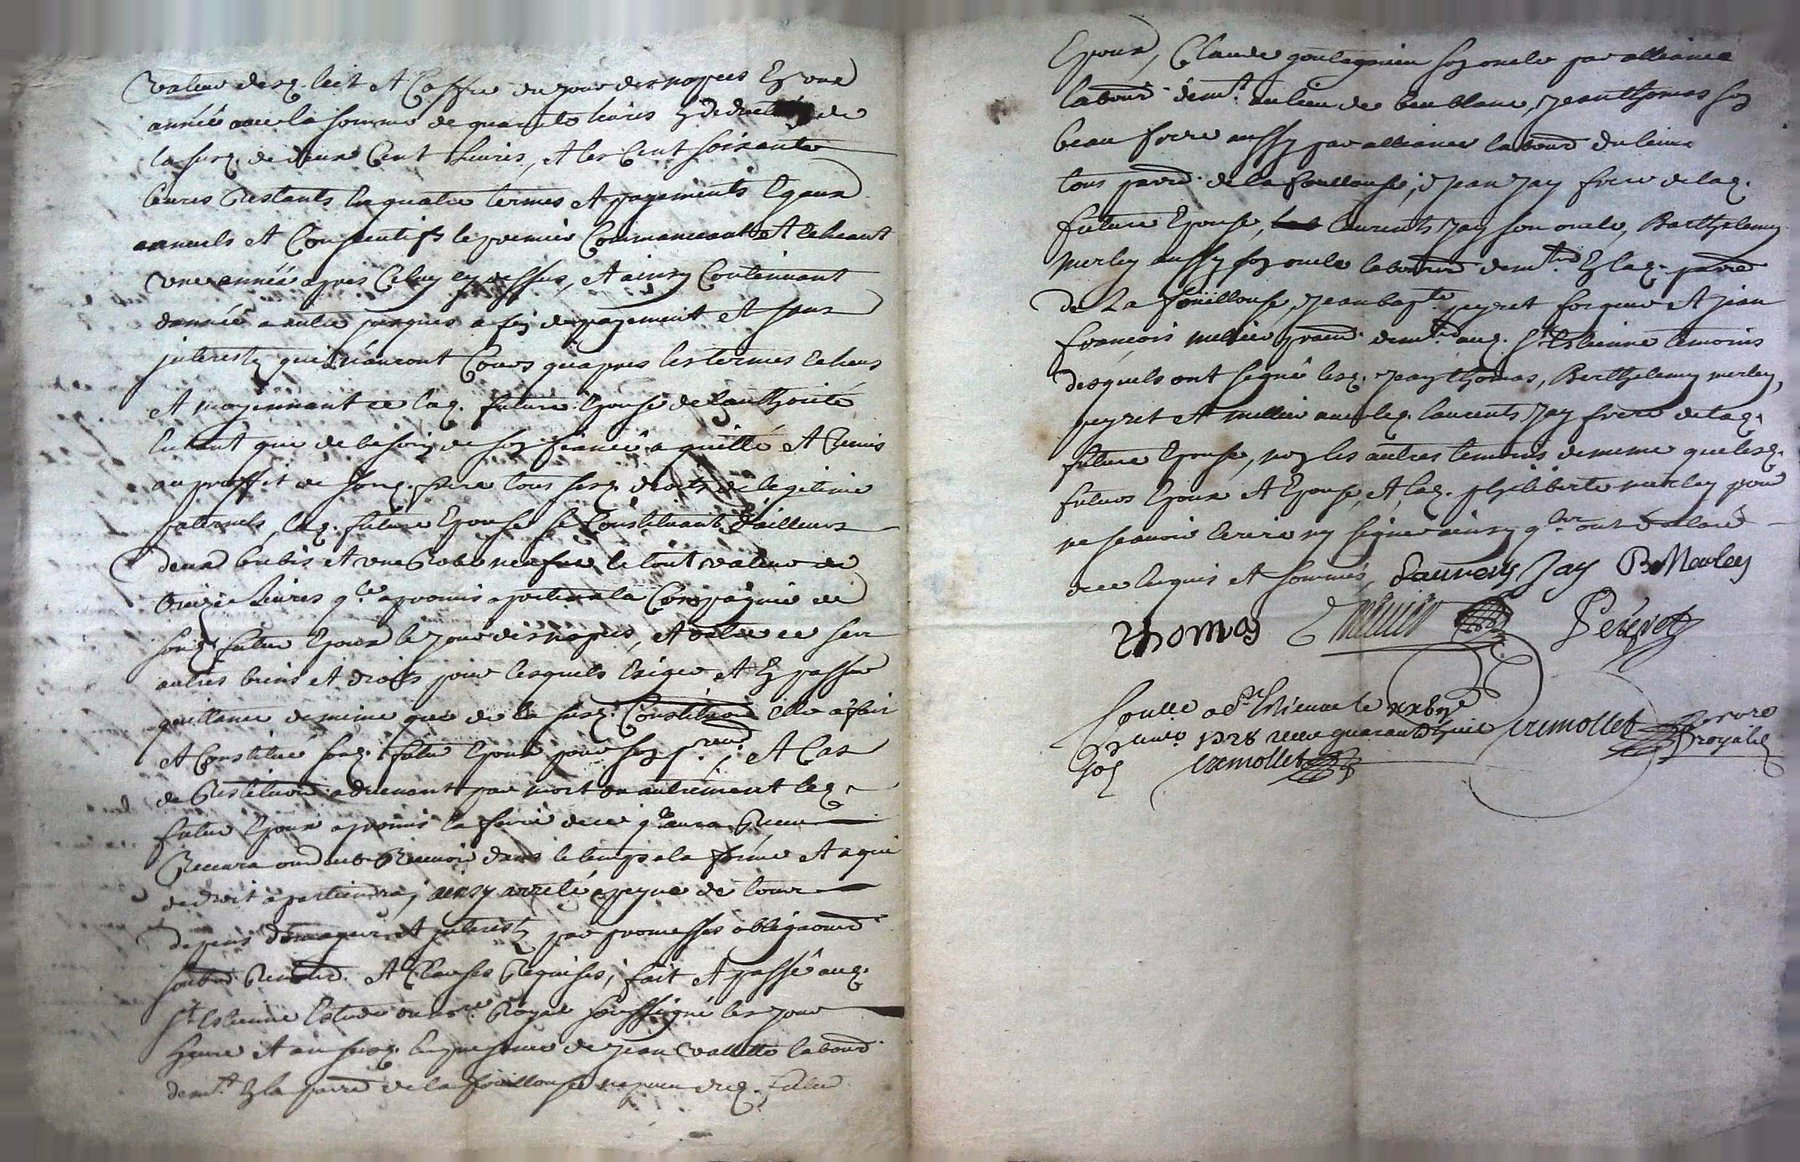 valeur desq. lict et coffre du jour des nopces en une
année avec la somme de quarante livres en deduction de
la susq. de deux cent livres, et les cent soixante
livres restants en quatre termes et payements egaux
annuels et consecutifs le premier commenceant et echeant
une année apres celuy cy dessus, et ainsy continuant
dannée a autre jusques a fin de payement et sans
interestz qui nauront cours quapres les termes echeus
et moyennant ce laq. future epouse de lauthorité
entant que de besoin de son fiancé a quitté et remis
au proffit de sond. pere tous sesq. droits de legitime
paternels, laq. future epouse se constituant d'ailleurs
deux brebis et une robe neufve le tout valeur de
treize livres qle. a promis aporter a la compagnie de
sonq. futur epoux le jour des nopces, et outre ce ses
autres biens et droits pour lesquels exiger et en passer
quittance de meme que de la susq. constituon elle a fait
et constitue sonq. futur epoux pour son preur., et cas
de restituon. advenant par mort ou autrement leq.
futur epoux a promis la faire de ce ql. aura receu
recevra ou deub recevoir dans le temps a la forme et a qui
de droit apartiendra, ainsy arreté a peyne de tous
depens domages et interestz par promesses obligaons
soubs. renons. et clauses requises; fait et passé auq.
St. Estienne Estude du nore. Royal soussigné les jour
heure et an susq. en presence de Jean valette labour.
demt. en la parr. de la fouillouse duq. futur
epoux, Claude son oncle par alliance
labour. demt. au lieu de leublanc, jean thomas son
beau frere aussy par alliance labour. du lieu
tous parr. de la fouillouse, jean jay frere de laq.
future epouse, laurents jay son oncle, Barthelemy
merley aussy son oncle labour. demt. en laq. parr.
de La fouillouse, jean bapte. peyret forgeur et jean
francois demt. auq. St. Estienne temoins
desquels ont signé lesq. jay thomas, Berthelemy merley,
peyret et avec leq. laurents jay frere de laq.
future epouse, non les autres temoins de meme que lesq.
futurs epoux et epouse, et laq. philiberte merley pour
ne scavoir ecrire ny signer ainsy qls. ont declaré
de ce enquis et sommés, Laurens Jay B Merley
Thomas Peÿret
Coulle a St. Estienne le
1728 receu quarante Cremollet nore
Cremollet royal